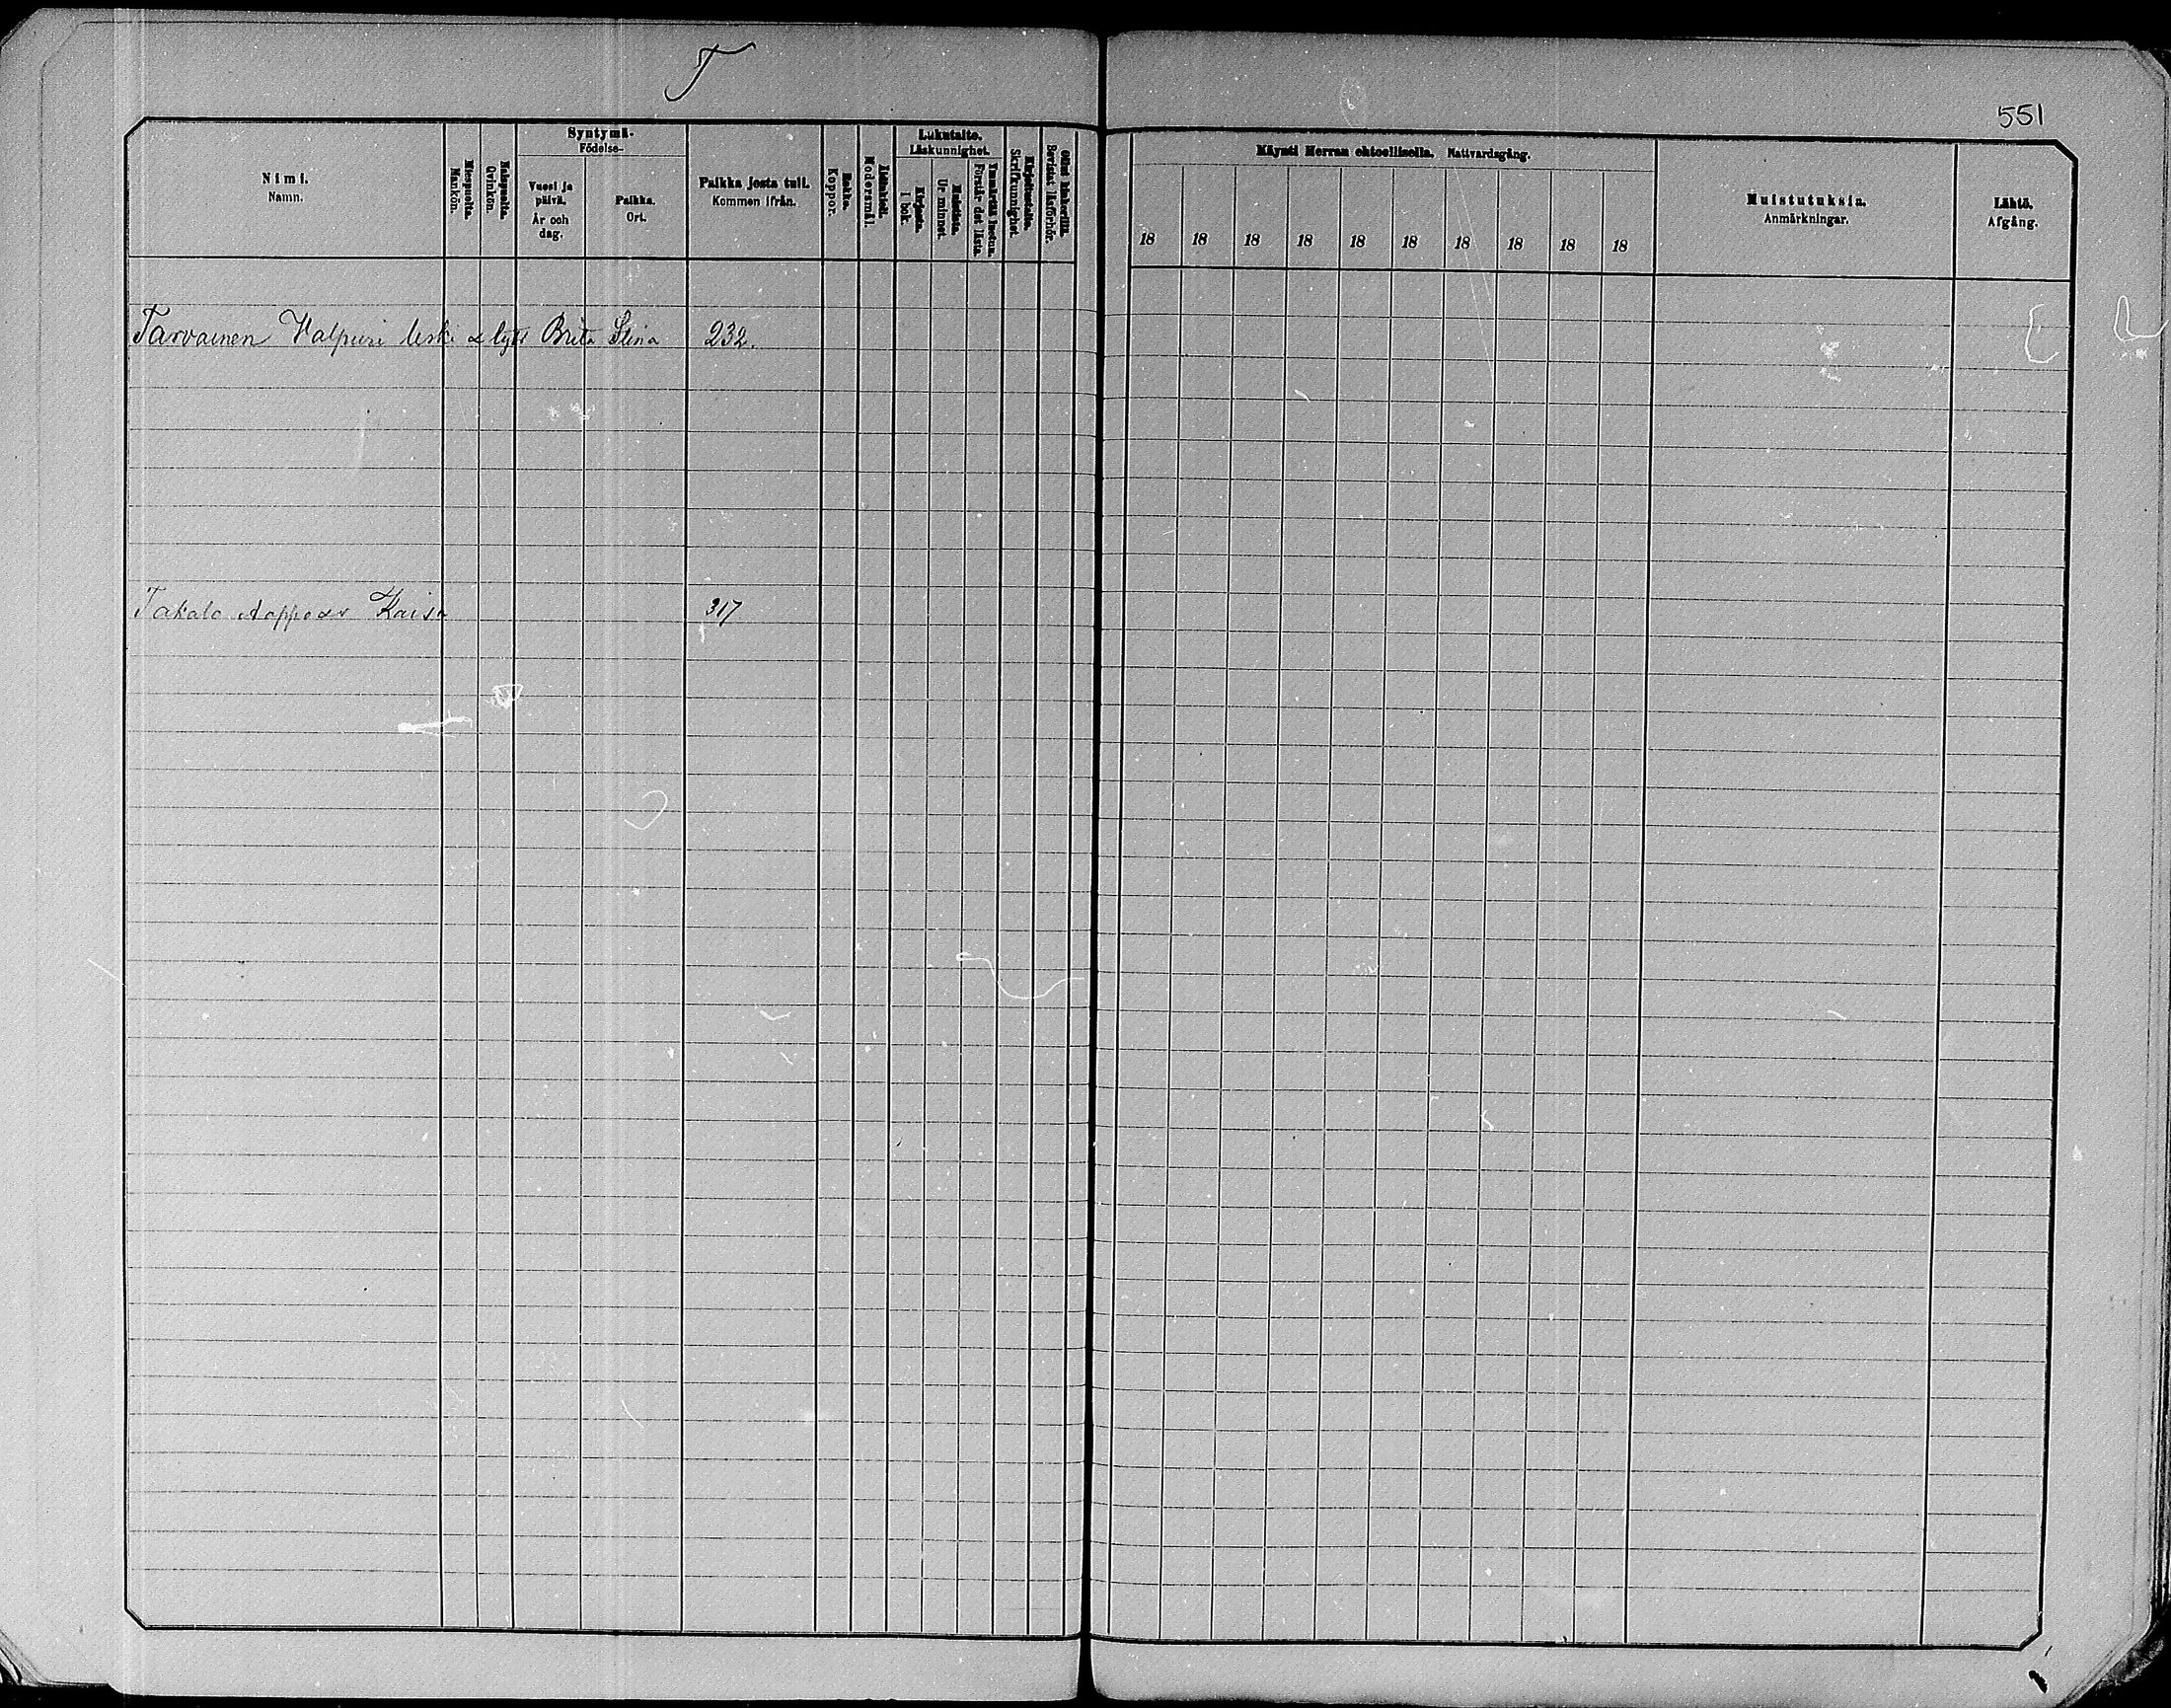 T
551
Nimi.
Namn.
Miespuolta.
Mankön.
Vaispuolta.
Qvinkön.
Syntymä-
Födelse-
Vuosi ja
päivä.
År och
dag.
Paikka.
Ort.
Paikka josta tuli.
Kommen ifrån.
Rokko.
Koppor.
Äidinkieli.
Modersmål.
Lukutaito.
Läskunnighet.
Kirjasta.
I bok.
Muistista.
Ur minnet.
Ymmärtää luetun.
Förstår det lästa.
Kirjoitustaito.
Skrifkunnighet.
Ollut kinkerillä.
Bevistat läsförhör.
Käynti Herran ehtoollisella. Nattvardsgång.
18 18 18 18 18 18 18 18 18 18
Muistutuksia.
Anmärkningar.
Lähtö.
Afgång.
Tarvainen Valpuri leski & tytr Brita Stina 232.
Takalo Kaisa 317